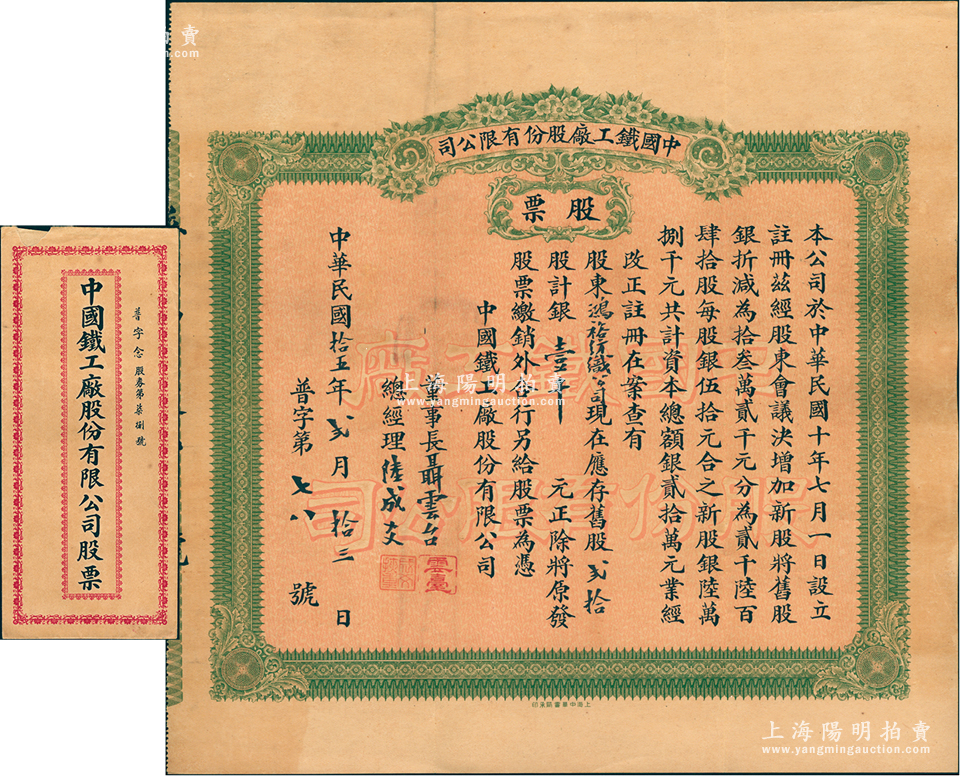 中國鐵工廠股份有限公司
股票
本公司於中華民國十年七月一日設立
註冊茲經股東會議決增加新股將舊股
銀折減為拾叁萬貳千元分為貳千陸百
肆拾股每股銀伍拾元合之新股銀陸萬
捌千元共計資本總額銀貳拾萬元業經
改正註冊在案查有
股東鴻裕紗號現在應存舊股弍拾
股計銀壹千元正除將原發
股票繳銷外合行另給股票為憑
中國鐵工廠股份有限公司
董事長聶雲台
雲臺
總經理陸成爻
中華民國拾五年弍月拾三日
普字第七八號
中國鐵工廠
股份有限公司
上海中華書局承印
普字念股券第柒捌號
中國鐵工廠股份有限公司股票
上海陽明拍賣
www.yangmingauction.com
上海陽明拍賣
www.yangmingauction.com
上海陽明拍賣
www.yangmingauction.com